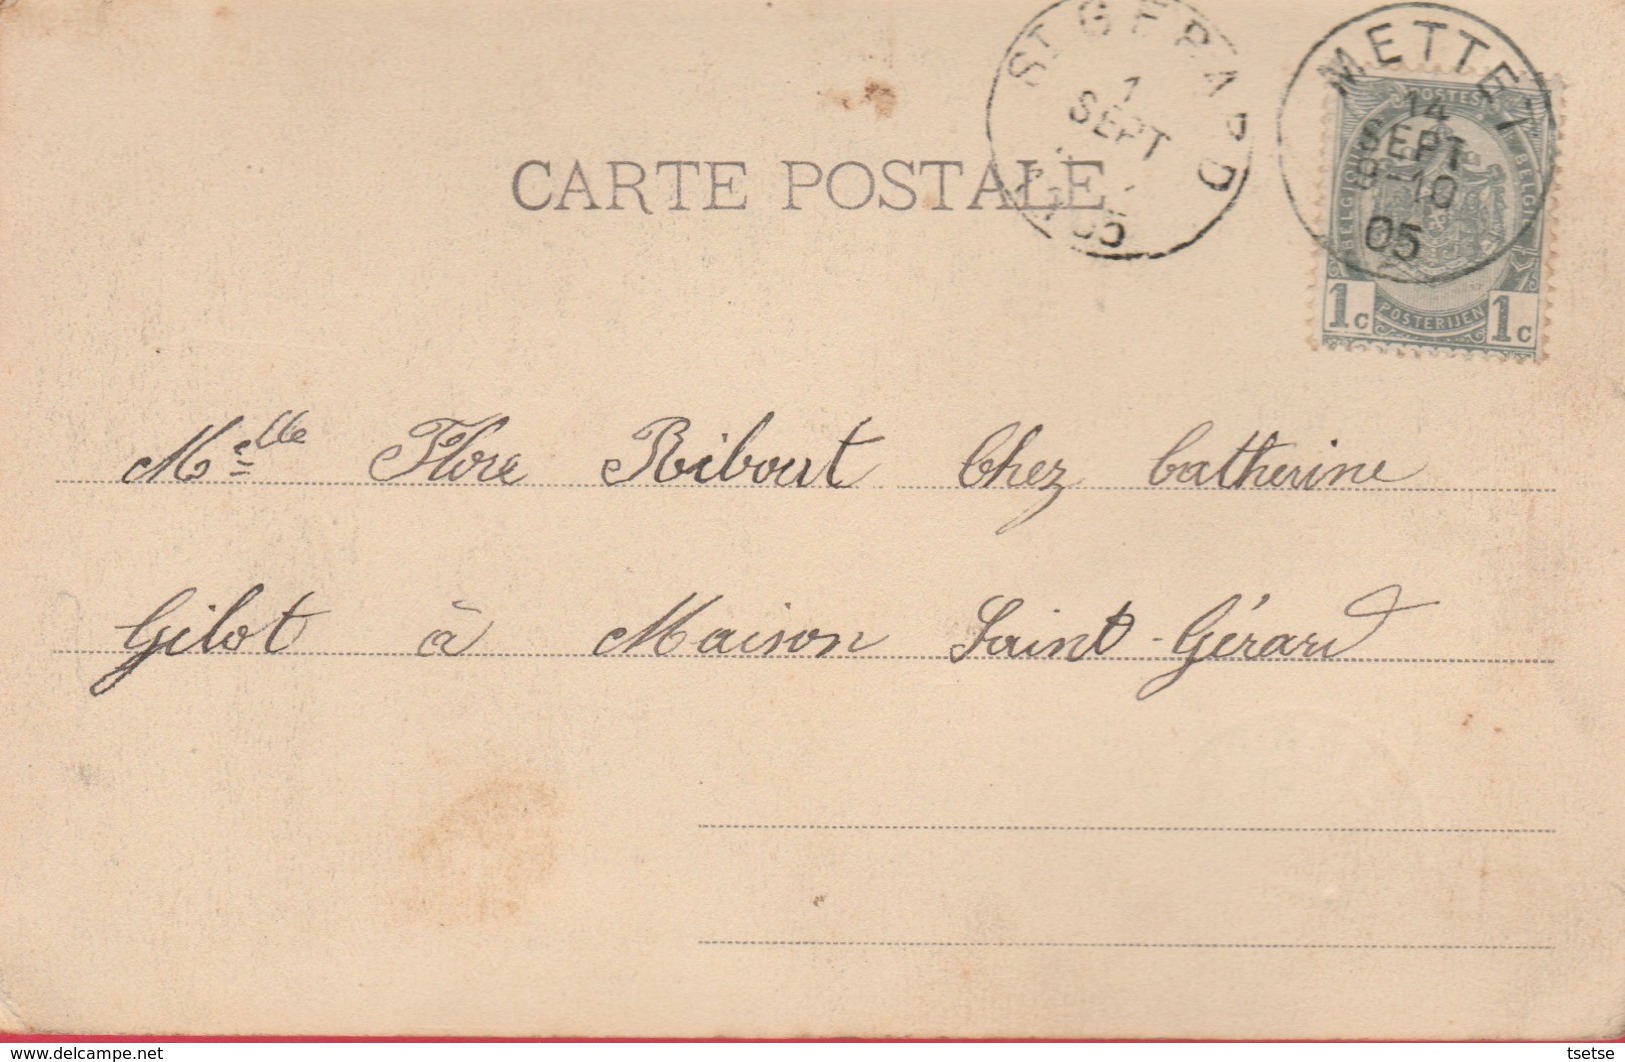 ST GERARD
1
SEPT
05
METTET
14
SEPT
9-10
05
POSTES
BELGIQUE
BELGIË
1c POSTERIJEN 1c
CARTE POSTALE
Melle Flore Ribout Chez Catherine
Gilot à Maison Saint-Gérard
© delcampe.net
tsetse